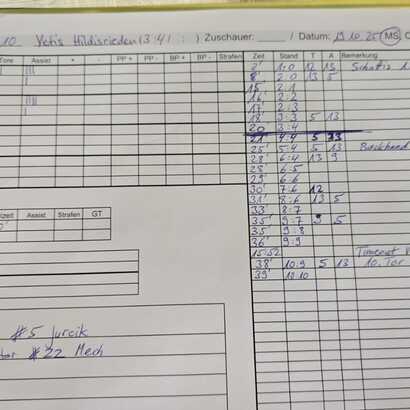 10 Yetis Hildisrieden (3:4 / : ) Zuschauer: / Datum: 19.10.25 MS
Tore Assist + - PP + PP - BP + BP - Strafen
Zeit Stand T A Bemerkung
2' 1:0 12 13
8' 2:0 13 5
15' 2:1
16' 2:2
17' 2:3
18' 3:3 5 13
20 3:4
21' 4:4 5 13
25' 5:4 5 13
28' 6:4 13 9
28' 6:5
29' 6:6
30' 7:6 12
31' 8:6 13 5
33' 8:7
35' 9:7 9 5
35' 9:8
36' 9:9
15:52 Timeout
38' 10:9 5 13 10. Tor
39' 10:10
Assist Strafen GT
#5 Jurcik
#22 Mech